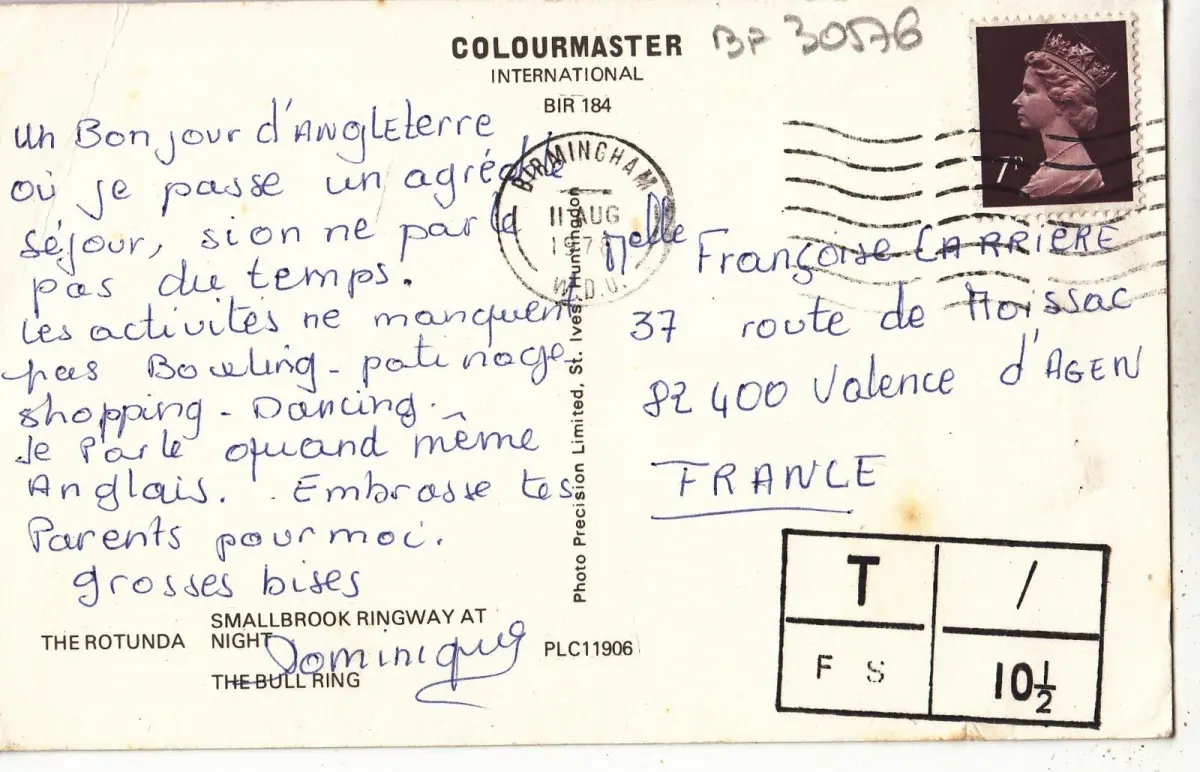 COLOURMASTER
INTERNATIONAL
BIR 184
BF 30576
7P
BIRMINGHAM
11 AUG
W.D.U.
un Bonjour d'ANGLEterre
où je passe un agréable
séjour, si on ne parle
pas du temps.
les activités ne manquent
pas Bowling - patinage
shopping - Dancing.
Je Parle quand même
Anglais. Embrasse tes
Parents pour moi.
grosses bises
Dominique
Melle Françoise CARRIÈRE
37 route de Moissac
82 400 Valence d'AGEN
FRANCE
Photo Precision Limited, St. Ives, Huntingdon
THE ROTUNDA
SMALLBROOK RINGWAY AT
NIGHT
THE BULL RING
PLC11906
T /
F S 10½